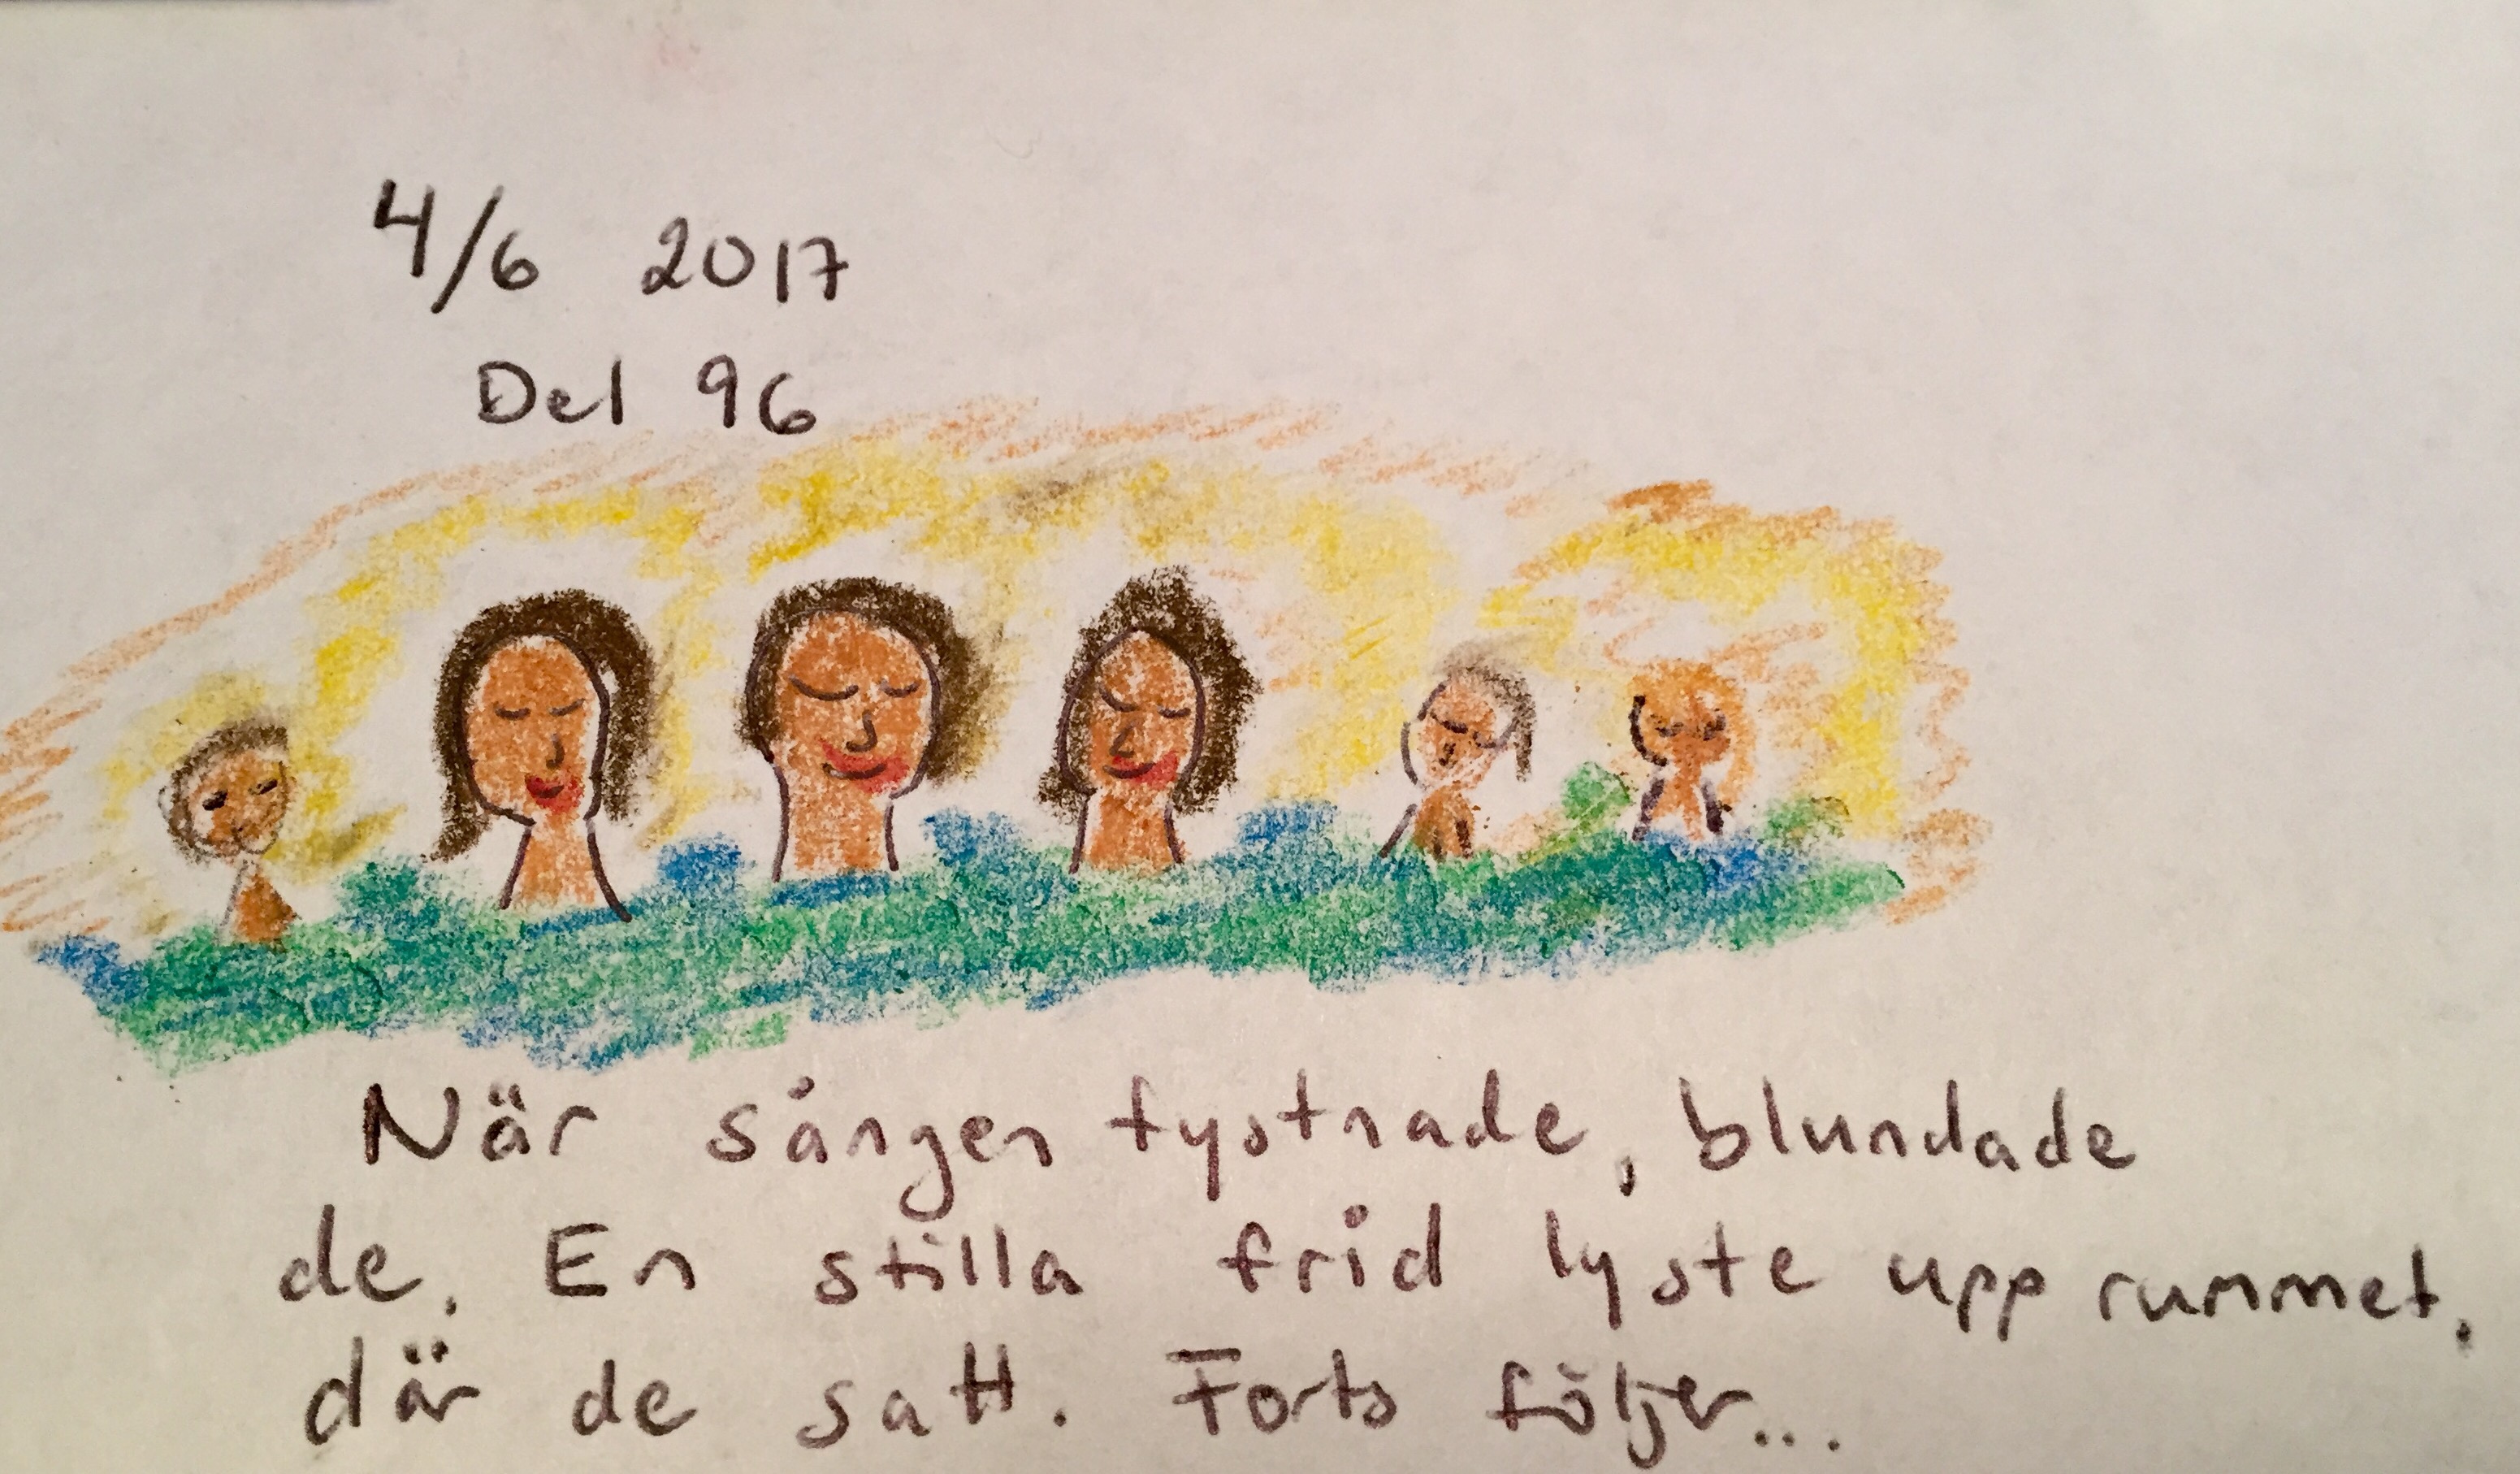 4/6 2017
Del 96
När sången tystnade, blundade
de. En stilla frid lyste upp rummet,
där de satt. Forts följer...